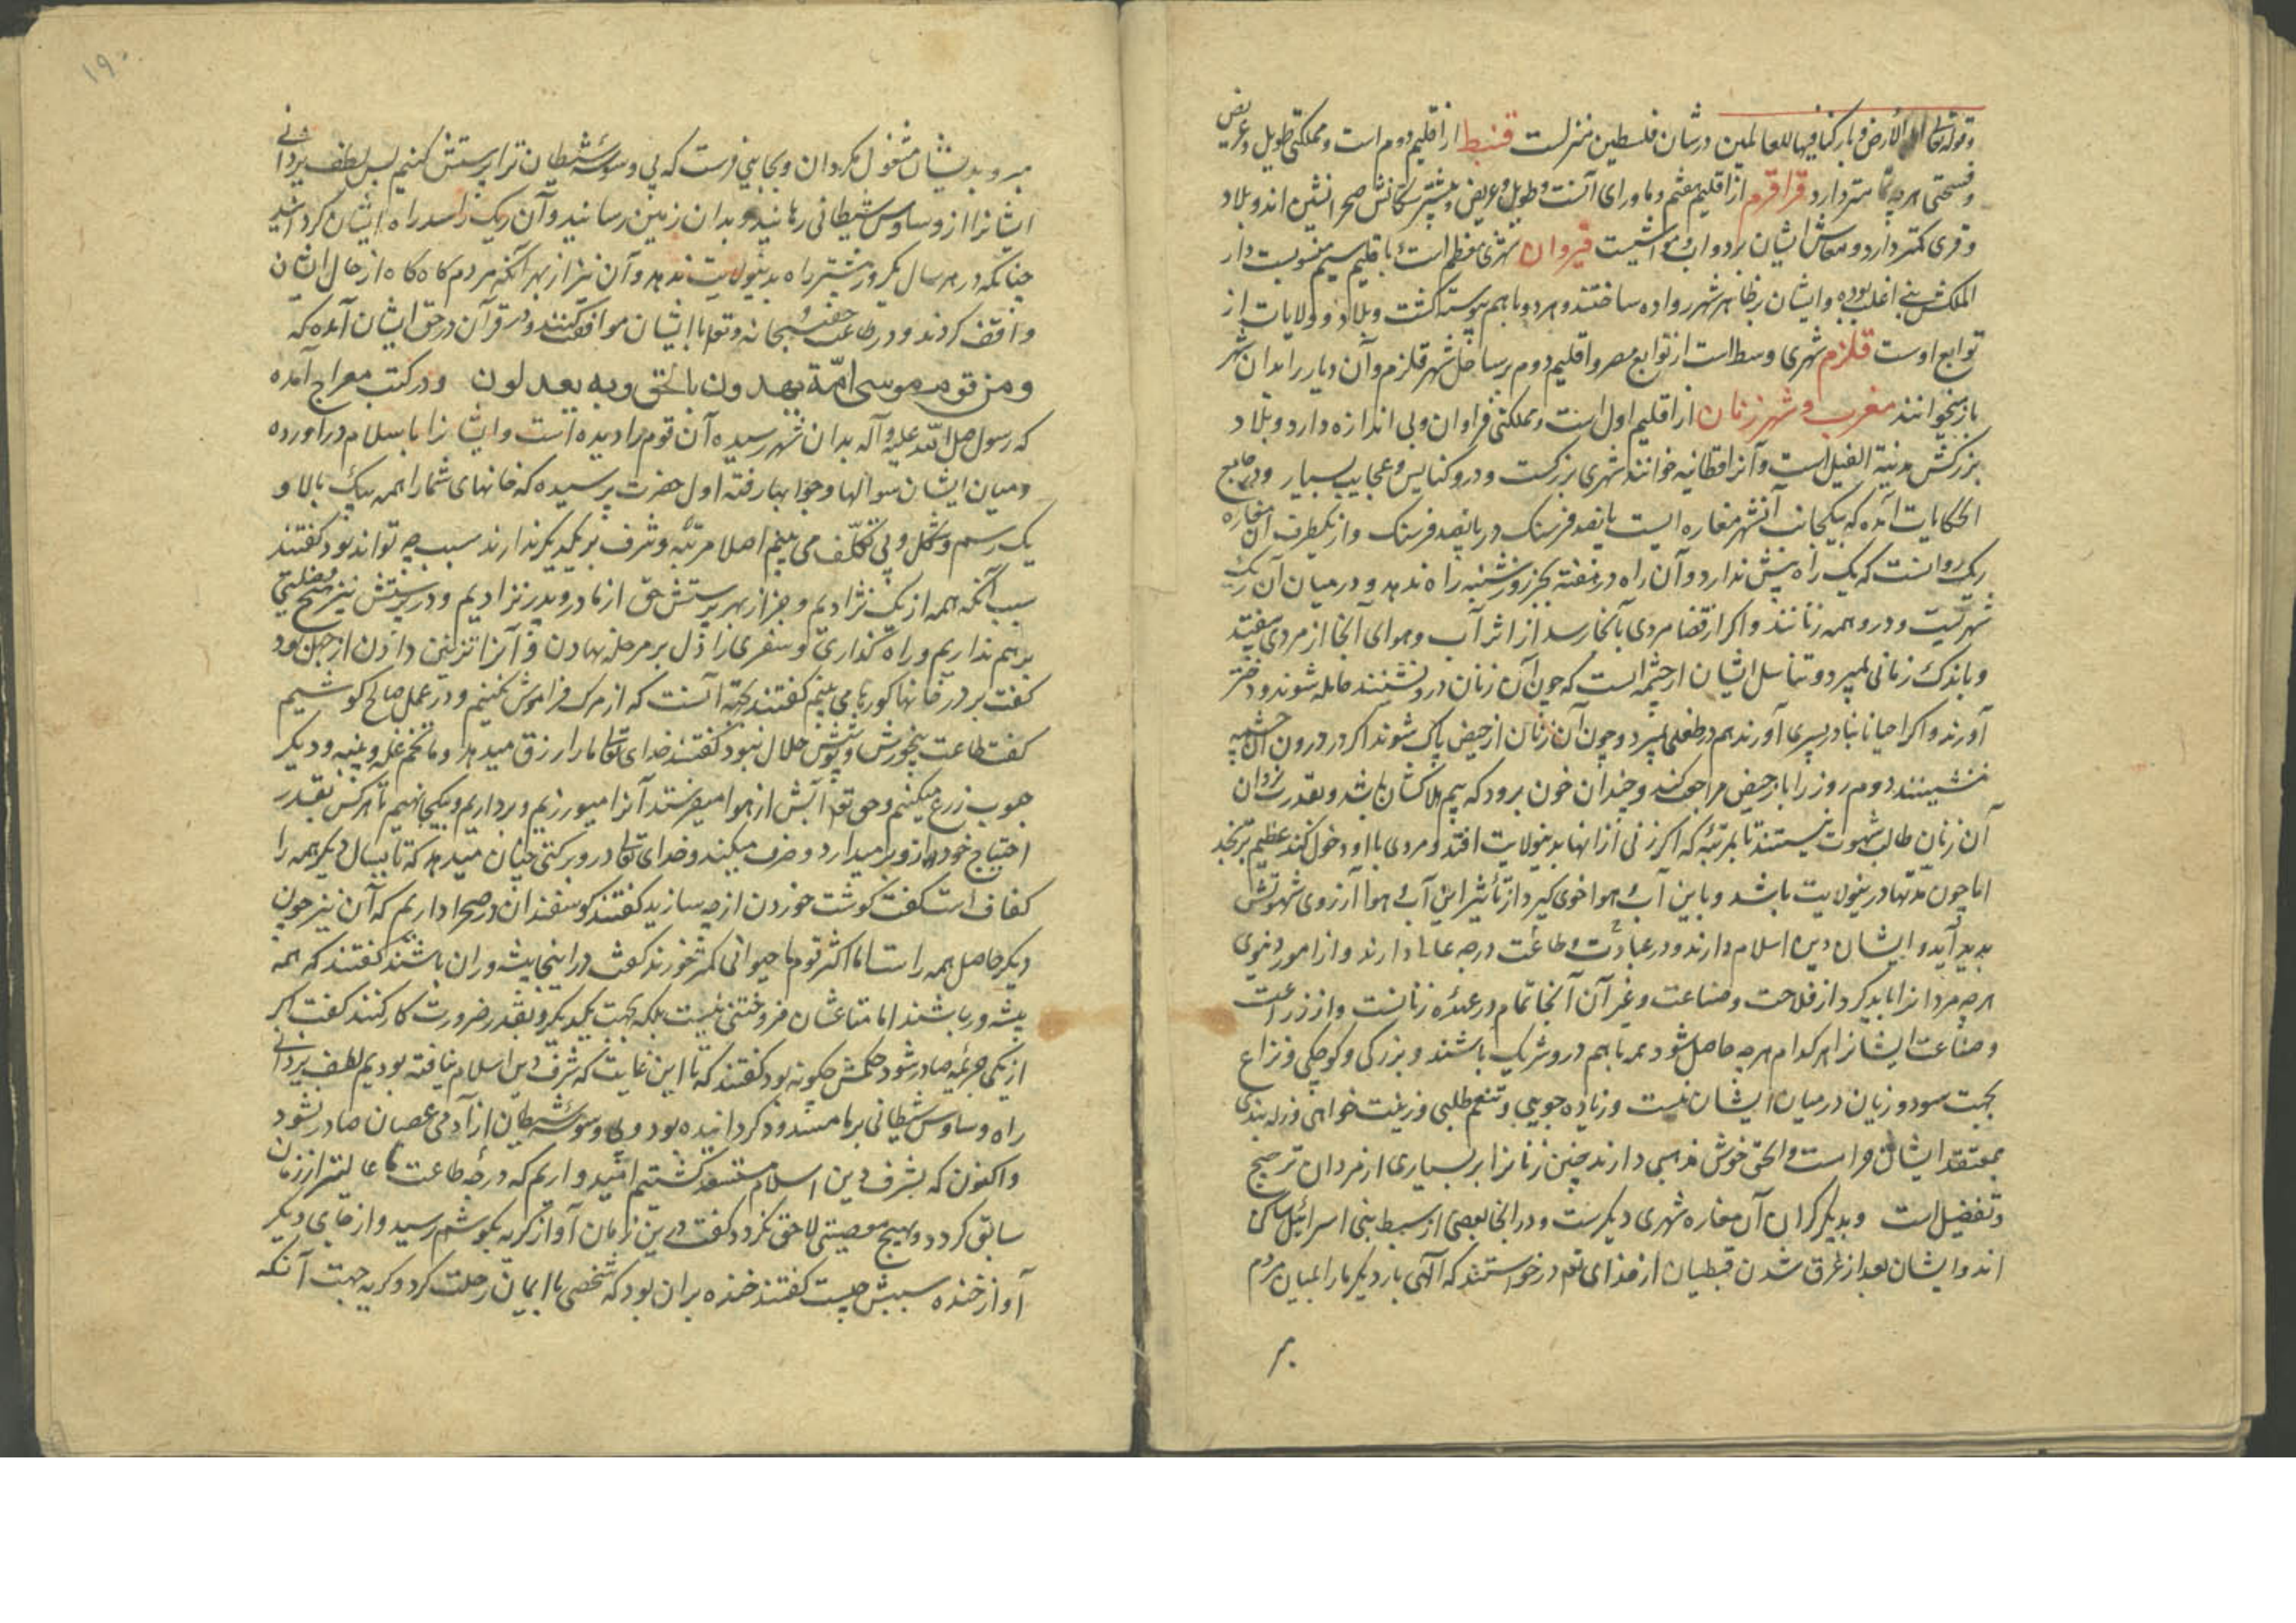 وقوله تعالی الأرض وبارکنا فیها للعالمین در شان فلسطین منزلست قنبط از اقلیم دوم است ومملکتی طویل وعریض
وفسحتی هر چه تمامتر دارد قراقرم از اقلیم هفتم وماورای آنست وطویل وعریض وبیشتر سکانش صحرانشین اند وبلاد
وقری کمتر دارد ومعاش ایشان بر دواب ومواشیست قیروان شهری معظم است باقلیم سیم منسوبست دار
الملک بنی اغلب بوده وایشان بر ظاهر شهر رواده ساختند وهر دو باهم پیوسته کشت وبلاد وولایات از
توابع اوست قلزم شهری وسط است از توابع مصر واقلیم دوم بر ساحل شهر قلزم وآن دیار را بدان شهر
باز میخوانند مغرب وشهر زنان از اقلیم اول است ومملکتی فراوان وبی اندازه دارد وبلاد
بزرکش مدینة الفیل است وآنرا قطانیه خوانند شهری بزرکست ودرو کنایس وعجایب بسیار ودر جامع
الحکایات آمده که بیکجانب آنشهر مغاره ایست پانصد فرسنک در پانصد فرسنک واز یکطرف آن مغاره
ریک روانست که یک راه بیش ندارد وآن راه در هفته بجز روز شنبه راه ندهد ودر میان آن ریک
شهریست ودرو همه زنانند واکر از قضا مردی بآنجا رسد از اثر آب وهوای آنجا از مردی بیفتد
وباندک زمانی بمیرد وتناسل ایشان از چشمه است که چون آن زنان درو نشینند حامله شوند ودختر
آورند واکر احیانا بنادر پسری آورند هم در طفلی بمیرد وچون آن زنان از حیض پاک شوند اکر در درون آن چشمه
ننشینند دوم روز را باز حیض مراجعت کند وچندان خون برود که بیم هلاکشان باشد وبقدر
آن زنان طالب شهوت نیستند تا بمرتبه که اکر زنی از انها بدینولایت افتد ومردی با او دخول کند عظیم برنجد
اما چون مدتها درینولایت باشد وباین آب وهوا خوی کیرد از تأثیر این آب وهوا آرزوی شهوتش
پدید آید وایشان دین اسلام دارند ودر عبادت وطاعت درجه عالی دارند واز امور دنیوی
هر چه مردانرا باید کرد از فلاحت وصناعت وغیر آن آنجا تمام در عهده زنانست واز زراعت
وصناعت ایشانرا هر کدام هر چه حاصل شود همه باهم درو شریک باشند وبزرکی وکوچکی ونزاع
بجهت سود وزیان در میان ایشان نیست وزیاده جویی وتنعم طلبی وزینت خواهی
بمعتقد ایشان حرامست والحق خوش مذهبی دارند چنین زنانرا بر بسیاری از مردان ترجیح
وتفضیل است وبدیکر کران آن مغاره شهری دیکرست ودر آنجا بعضی از سبط بنی اسرائیل ساکن
اند وایشان بعد از غرق شدن قبطیان از خدای تعالی درخواستند که الهی بار دیکر ما را بمیان مردم
مبر
۱۹۰
مبر وبدیشان مشغول مکردان وبجایی فرست که بی وسوسه شیطان ترا پرستش کنیم پس لطف یزدانی
ایشانرا از وساوس شیطانی رهانید وبدان زمین رسانید وآن ریک را سد راه ایشان کردانید
چنانکه در هر سال یکروز بیشتر راه بدینولایت ندهد وآن نیز از بهر آنکه مردم کاه کاه از حال ایشان
واقف کردند ودر طاعت حق سبحانه وتعالی با ایشان موافقت کنند ودر قرآن در حق ایشان آمده که
ومن قوم موسی امّة یهدون بالحق وبه یعدلون ودر کتب معراج آمده
که رسول صلی الله علیه وآله بدان شهر رسیده آن قوم را دیده است وایشانرا باسلام درآورده
ومیان ایشان سوالها وجوابها رفته اول حضرت پرسیده که خانهای شما را همه بیک بالا و
یک رسم وشکل وبی تکلّف می بینم اصلا مرتبه وشرف بر یکدیکر ندارند سبب چه تواند بود کفتند
سبب آنکه همه از یک نژادیم وجز از بهر پرستش حق از مادر وپدر نزادیم ودر پرستش نیز هیچ فضلیتی
بر هم نداریم وراه کذاری وسفری را دل بر مرحله نهادن وآنرا تزیین دادن از جهل بود
کفت بر در خانها کورها می بینم کفتند جهته آنست که از مرک فراموش نکنیم ودر عمل صالح کوشیم
کفت طاعت بیخورش وپوشش حلال نبود کفتند خدای تعالی ما را رزق میدهد وما تخم غله وپنبه ودیکر
حبوب زرع میکنیم وحق تعالی آبش از هوا میفرستد آنرا میورزیم وبرداریم وبیکجا نهیم تا هر کس بقدر
احتیاج خود ازو برمیدارد وصرف میکند وخدای تعالی درو برکتی چنان میدهد که تا بسال دیکر همه را
کفاف است کفت کوشت خوردن از چه سازید کفتند کوسفندان در صحرا داریم که آن نیز چون
دیکر حاصل همه راست اما اکثر قوم ما حیوانی کمتر خورند کفت در اینجا پیشه وران باشند کفتند که همه
پیشه ور باشند اما متاعشان فروختنی نیست بلکه بجهت یکدیکر وبقدر ضرورت کار کنند کفت اکر
از یکی جریمه صادر شود حکمش چکونه بود کفتند که تا این غایت که شرف دین اسلام نیافته بودیم لطف یزدانی
راه وساوس شیطانی بر ما مسدود کردانیده بود وبی وسوسه شیطان از آدمی عصیان صادر نشود
واکنون که بشرف دین اسلام مستسعد کشتیم امید واریم که درجه طاعت ما عالیتر از زمان
سابق کردد وهیچ معصیتی لاحق نکردد کفت درین زمان آواز کریه بکوشم رسید واز جای دیکر
آواز خنده سببش چیست کفتند خنده بران بود که شخصی با ایمان رحلت کرد وکریه جهت آنکه